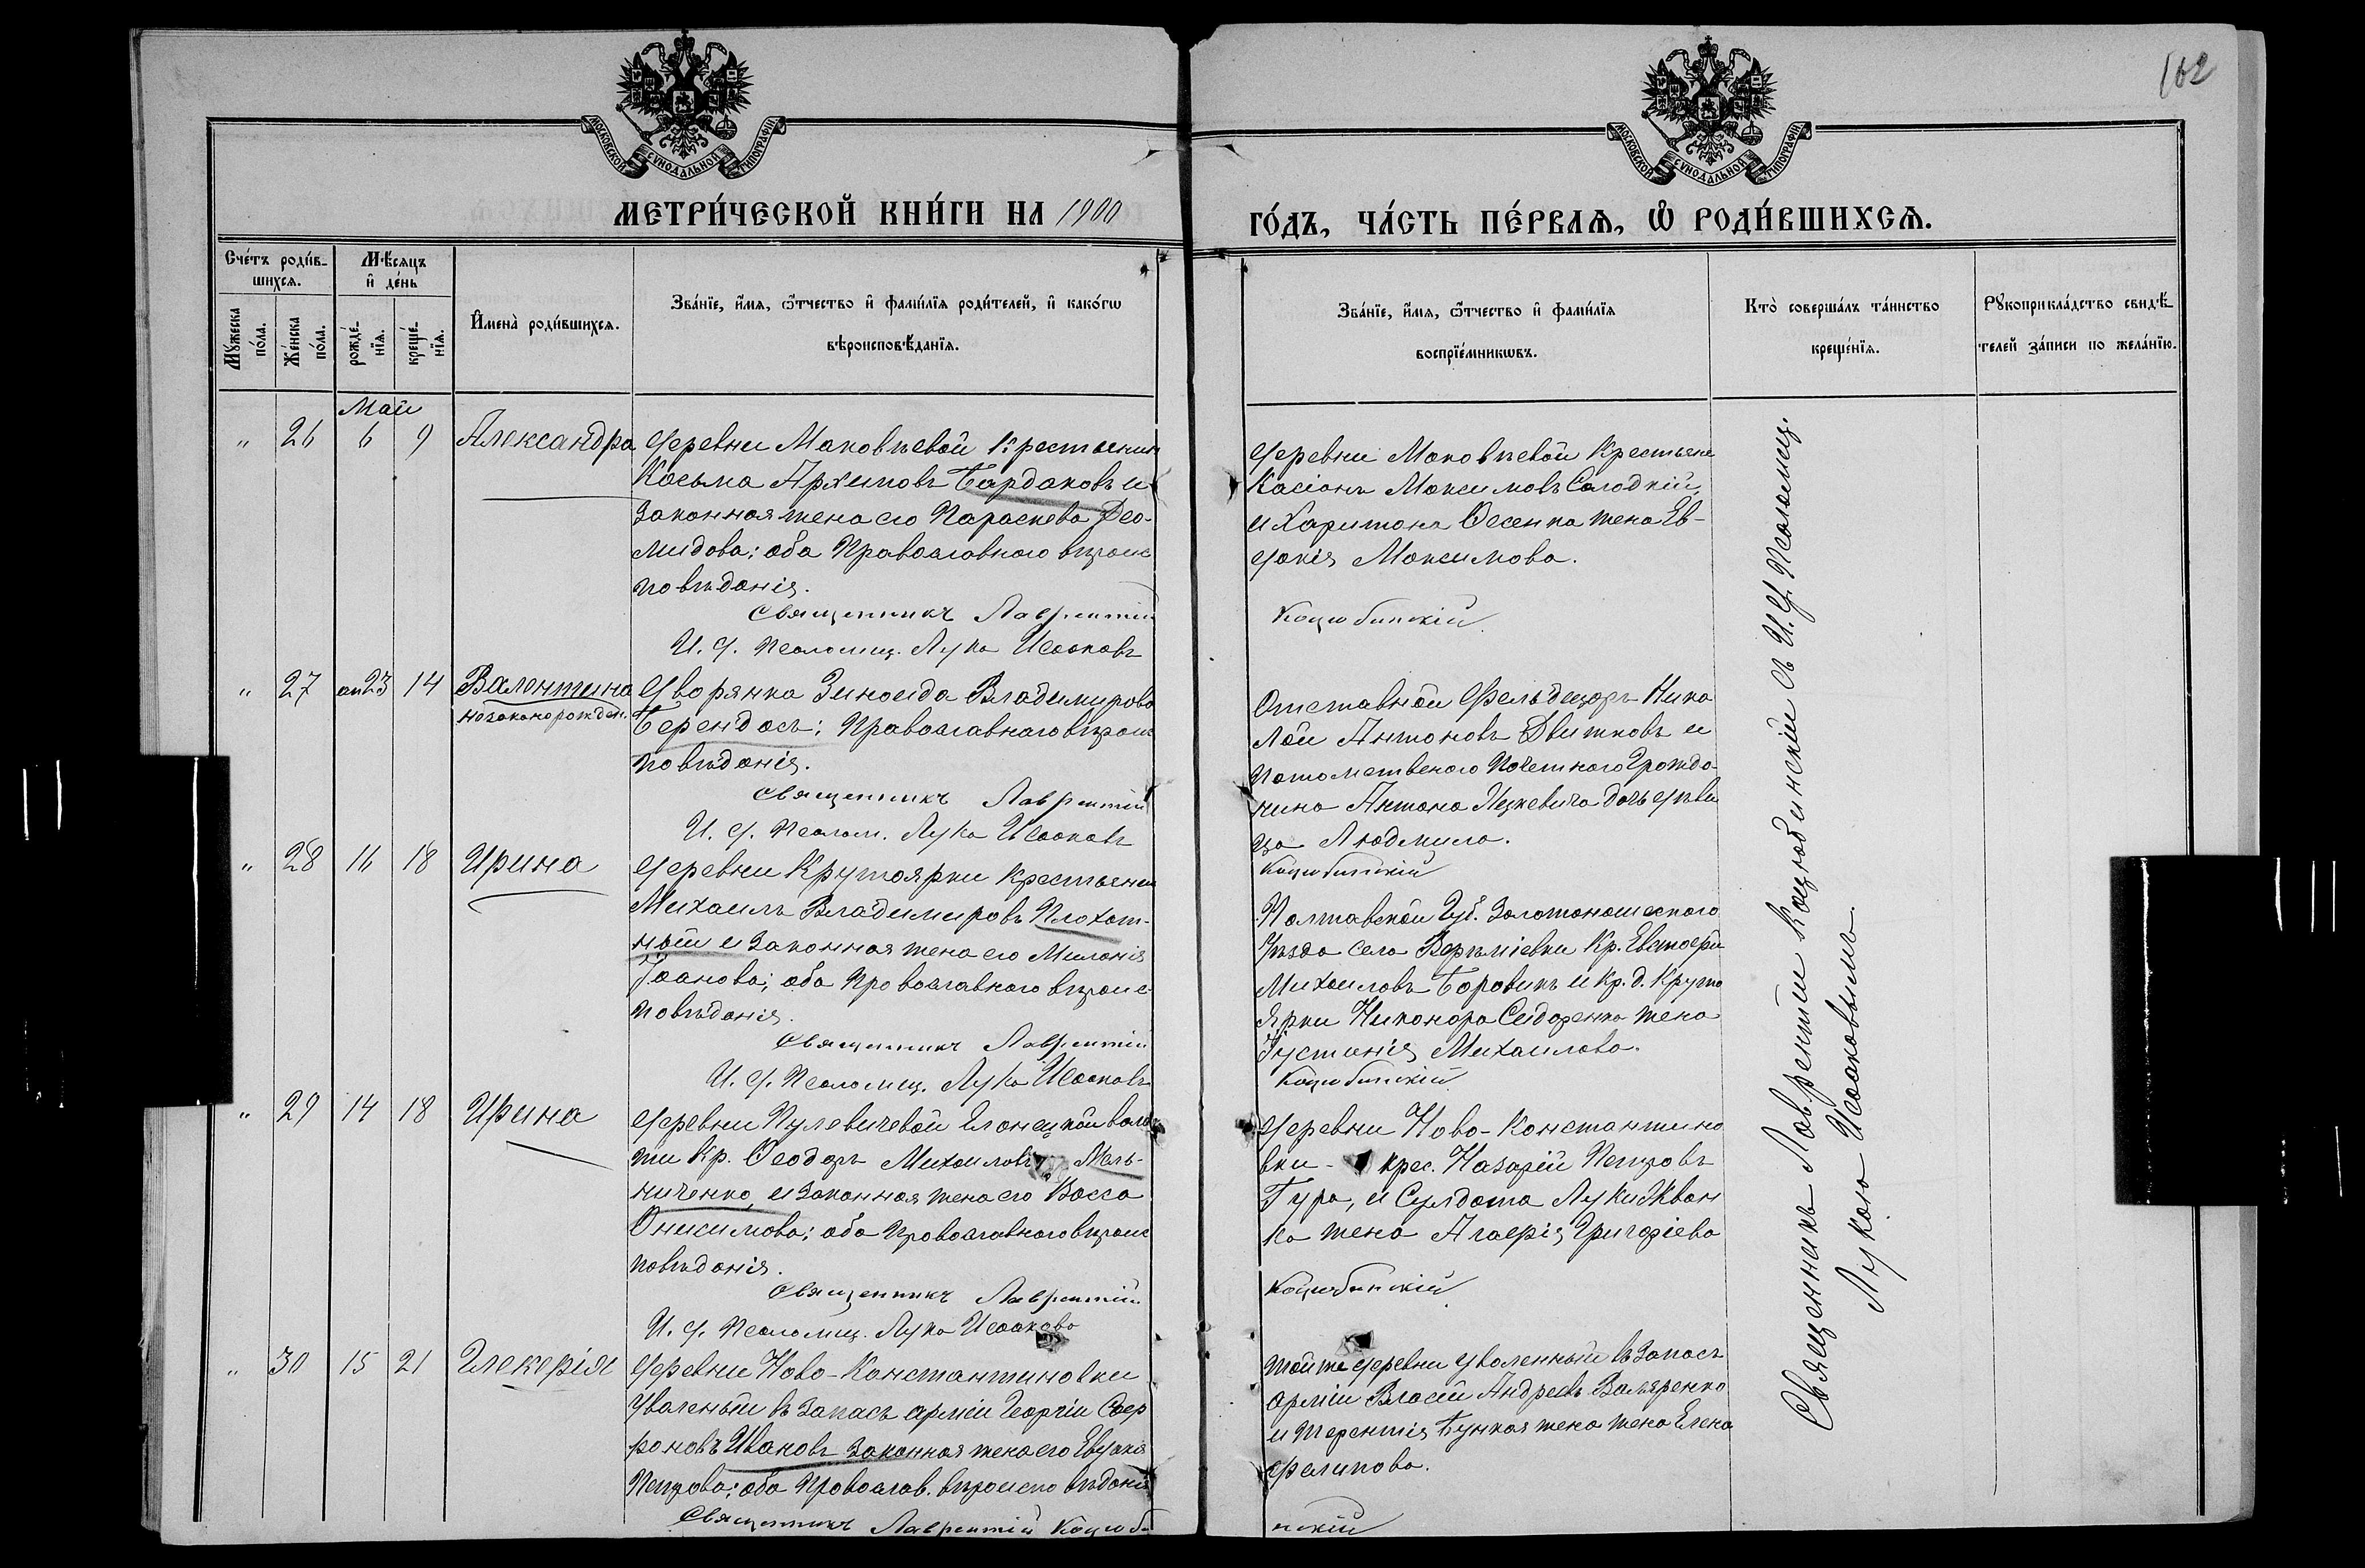 162
МОСКОВСКОЙ СУНОДАЛЬНОЙ ТИПОГРАФІИ
МОСКОВСКОЙ СУНОДАЛЬНОЙ ТИПОГРАФІИ
МЕТРИ́ЧЕСКОЙ КНИ́ГИ НА 1900
ГО́ДЪ, ЧА́СТЬ ПЕ́РВАѦ, Ѡ РОДИ́ВШИХСѦ.
Сче́тъ роди́в-
шихсѧ.
Мꙋ́жеска
по́ла.
Же́нска
по́ла.
Мѣ́сяцъ
и де́нь
рожде́-
нїѧ.
креще́-
нїѧ.
Имена̀ роди́вшихсѧ.
Зва́нїе, и́мѧ, ѻ҆́тчество и фами́лїѧ роди́телей, и како́гѡ
вѣроисповѣ́данїѧ.
Зва́нїе, и́мѧ, ѻ҆́тчество и фами́лїѧ
воспрїе́мникѡвъ.
Кто̀ соверша́лъ та́инство
креще́нїѧ.
Рꙋкоприкла́дство свидѣ́-
телей за́писи по жела́нїю.
Май
" 26 6 9 Александра
Деревни Маковѣевой крестьянин
Косьма Архиповъ Бардаковъ и
законная жена его Параскева Део-
мидова; оба Православного вѣроис
повѣданія.
Священникъ Лаврентій
И. д. Псаломщ. Лука Исааковъ
Деревни Маковѣевой Крестьяне
Касіанъ Максимовъ Солодкій,
и Харитона Осенка жена Ев-
докія Максимова.
Коцюбинскій
" 27 ап 23 14 Валентина
незаконорожден.
Дворянка Зиноида Владимирова
Берендосъ; Православнаго вѣроис
повѣданія.
Священникъ Лаврентій
И. д. Псалом. Лука Исааковъ
Отставной Фельдшеръ Нико
лай Антоновъ Двитковъ и
потомственого Почетного Гражда
нина Антона Яцкевича дочь дѣви
ца Людмила.
Коцюбинскій
" 28 16 18 Ирина
Деревни Крутоярки крестьянин
Михаилъ Владимировъ Плохот-
ный и законная жена его Миланія
Іоанова; оба Православнаго вѣроис
повѣданія.
Священникъ Лаврентій
И. д. Псаломщ. Лука Исааковъ
Полтавской Губ. Золотоношского
Уѣзда села Веремїевки Кр. Евстафи
Михаиловъ Боровикъ и кр. д. Круто
Ярки Никонора Сидоренка жена
Іустинія Михаилова.
Коцюбинскій
" 29 14 18 Ирина
Деревни Пулевичевой Елонецкой волос
ти кр. Феодоръ Михаиловъ Мель-
ниченко, и законная жена его Васса
Онисимова; оба Православнаго вѣроис
повѣданія.
Священникъ Лаврентій
И. д. Псаломщ. Лука Исаакова
Деревни Ново-Константино
вки - крес. Назарій Петровъ
Гура, и Солдата Луки Жван
ка жена Агаѳія Григоріева
Коцюбинскій
" 30 15 21 Гликерія
Деревни Ново-Константиновки
Уваленый въ запасъ арміи Георгій Соер
роновъ Ивановъ законная жена его Евдокія
Петрова; оба Православ. вѣроисповѣданія
Священникъ Лаврентій Коцюби
той же деревни уваленный въ запасъ
арміи Власій Андреевъ Валяренко
и Терентія Бункая жена жена Елена
Филипова.
нскій
Священникъ Лаврентій Коцюбинскій съ И. д. Псаломщ.
Лукою Исааковымъ.